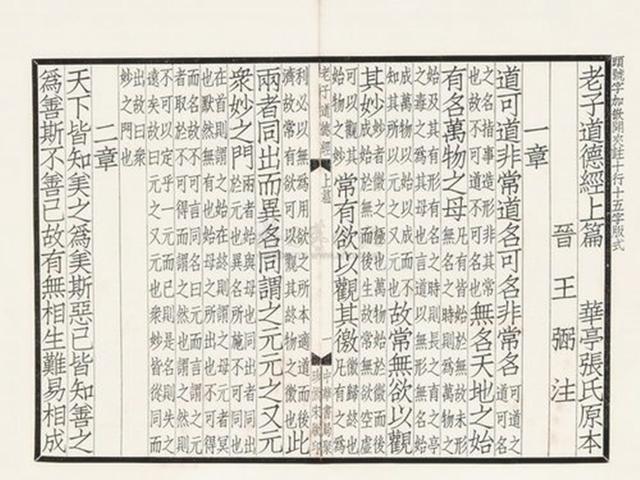 頭號字加嵌開夾註十行十五字版式
老子道德經上篇　華亭張氏原本
晉　王　弼　注
一章
道可道非常道名可名非常名可道之道可名
之名指事造形非其常也故不可道不可名也無名天地之始
有名萬物之母凡有皆始於無故未形無名之時則為萬物之
始及其有形有名之時則長之育之亭之毒之為其母也言道以無形無名始
成萬物以始以成而不知其所以元之又元也故常無欲以觀
其妙妙者微之極也萬物始於微而後成始於無而後生故常無欲空虛
可以觀其始物之妙常有欲以觀其徼徼歸終也凡有之為
老子道德經　上篇　一　中華書局聚珍仿宋版印
利必以無為用欲之所本適道而後濟故常有欲可以觀其終物之徼也此
兩者同出而異名同謂之元元之又元
衆妙之門兩者始與母也同出者同出於元也異名所施不可同也
在首則謂之始在終則謂之母元者冥也默然無有也始母之所出也不可得
而名故不可言同名曰元而言謂之元者取於不可得而謂之然也謂之然則
不可以定乎一元而已則是名則失之遠矣故曰元之又元也衆妙皆從同而
出故曰衆妙之門也
二章
天下皆知美之爲美斯惡已皆知善之
爲善斯不善已故有無相生難易相成